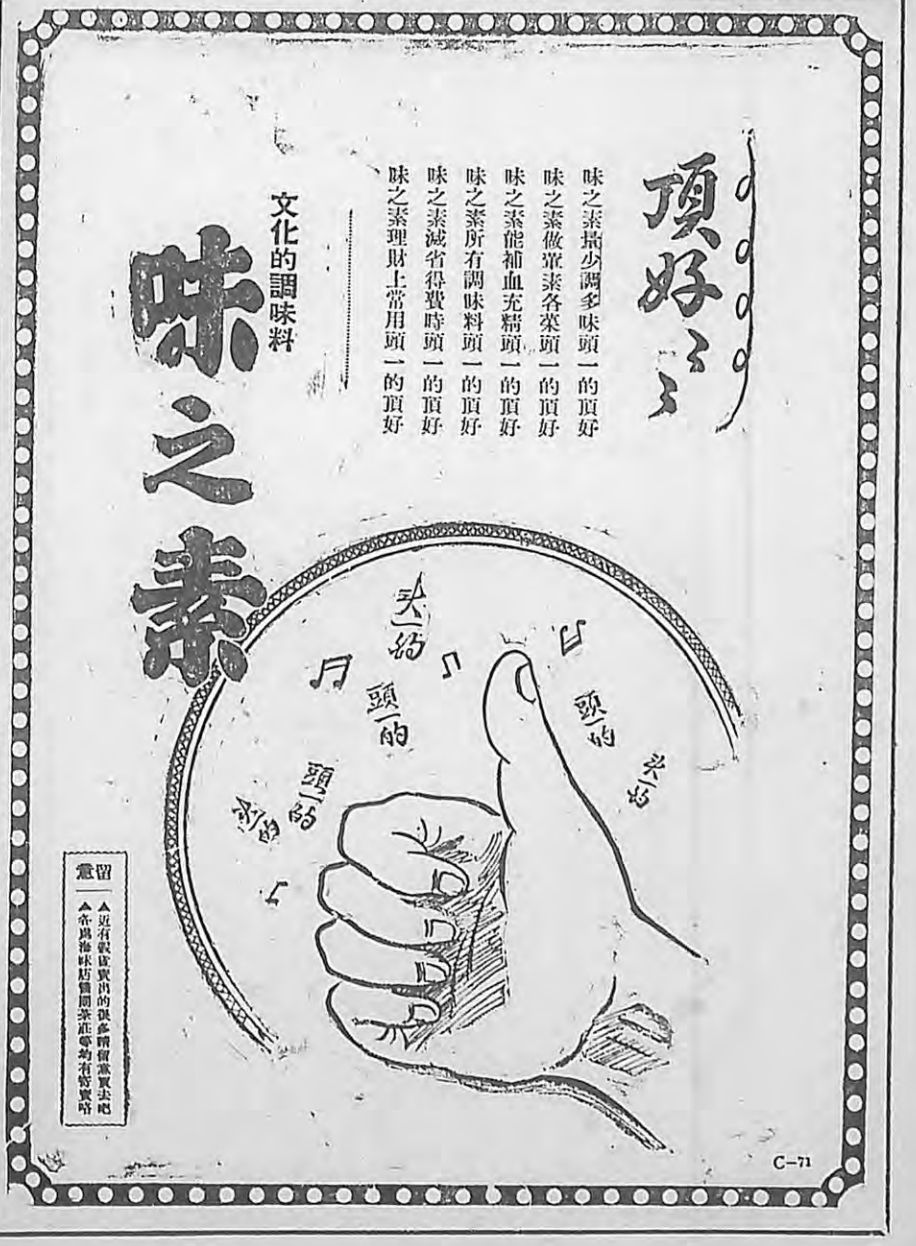 頂好〻〻
味之素量少調多味頭一的頂好
味之素做葷素各菜頭一的頂好
味之素能補血充精頭一的頂好
味之素所有調味料頭一的頂好
味之素減省得費時頭一的頂好
味之素理財上常用頭一的頂好
文化的調味料
味之素
头一的
頭一的
頭一的
头一的
頭一的
头一的
留意
▲近有假貨賣出的很多請留意買去吧
▲各處海味店醬園茶莊等均有寄賣咯
C-71